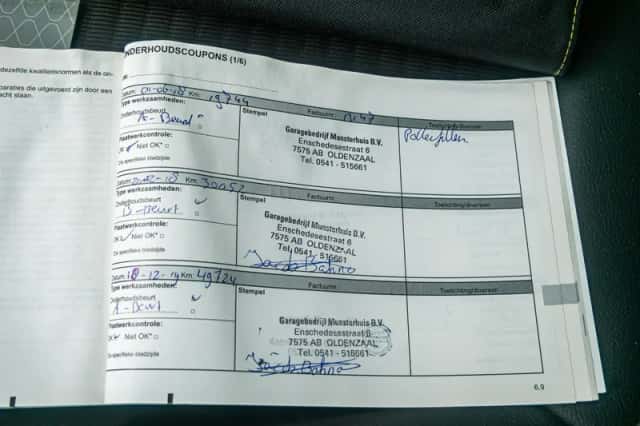 dezelfde kwaliteitsnormen als de on-
paraties die uitgevoerd zijn door een
acht staan.
ONDERHOUDSCOUPONS (1/6)
Datum: 01-06-18 Km: 19744 Factuurnr.: Toelichting/diversen
Type werkzaamheden: Stempel
Onderhoudsbeurt
A-Beurt
Plaatwerkcontrole:
OK Niet OK*
Zie specifieke bladzijde
Garagebedrijf Munsterhuis B.V.
Enschedesestraat 6
7575 AB OLDENZAAL
Tel. 0541 - 515661
Pollenfilter
Datum: Km: 30052 Factuurnr. Toelichting/diversen
Type werkzaamheden: Stempel
Onderhoudsbeurt
B-Beurt
Plaatwerkcontrole:
OK Niet OK*
Zie specifieke bladzijde
Garagebedrijf Munsterhuis B.V.
Enschedesestraat 6
7575 AB OLDENZAAL
Tel. 0541 - 515661
Datum: 10-12-19 Km: 49724 Factuurnr. Toelichting/diversen
Type werkzaamheden: Stempel
Onderhoudsbeurt
A-Beurt
Plaatwerkcontrole:
OK Niet OK*
Zie specifieke bladzijde
Garagebedrijf Munsterhuis B.V.
Enschedesestraat 6
7575 AB OLDENZAAL
Tel. 0541 - 515661
6.9